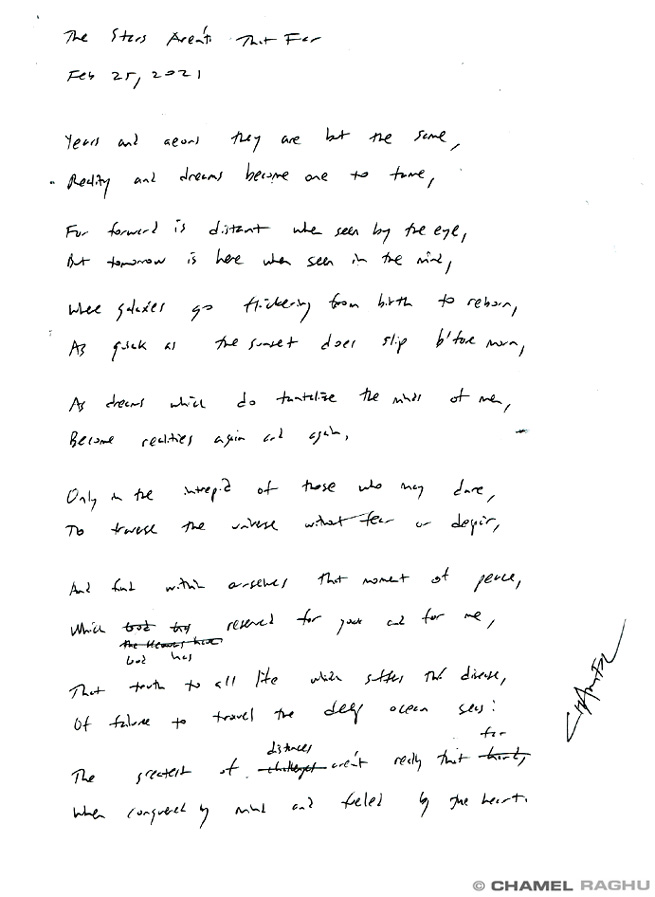 The Stars Aren't That Far
Feb 25, 2021
Years and aeons they are but the same,
Reality and dreams become one to tame,
Far forward is distant when seen by the eye,
But tomorrow is here when seen in the mind,
Where galaxies go flickering from birth to reborn,
As quick as the sunset does slip b'fore morn,
As dreams which do tantalize the minds of men,
Become realities again and again.
Only in the intrepid of those who may dare,
To traverse the universe without fear or despair,
And find within ourselves that moment of peace,
Which reserved for you and for me,
the Heavens have
God has
That truth to all life which suffers the disease,
Of failure to travel the deep ocean seas:
distances far
The greatest of challenges aren't really that hard,
When conquered by mind and fueled by the heart.
CHAMEL
© CHAMEL RAGHU